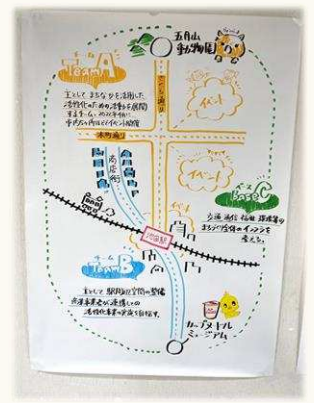 五月山
動物園
チーム
TeamA
主として まちなかを活用した
活性化のための活動を展開
さくら通り
イベント
本町通り
商店街
イベント
ベース
BaseC
交通 通信 福祉 環境等の
まちづくり全体のインフラを
考える。
イベント
池田駅
チーム
TeamB
主として 駅周辺空間の整備
活性化事業の実現を目指す。
カップヌードル
ミュージアム